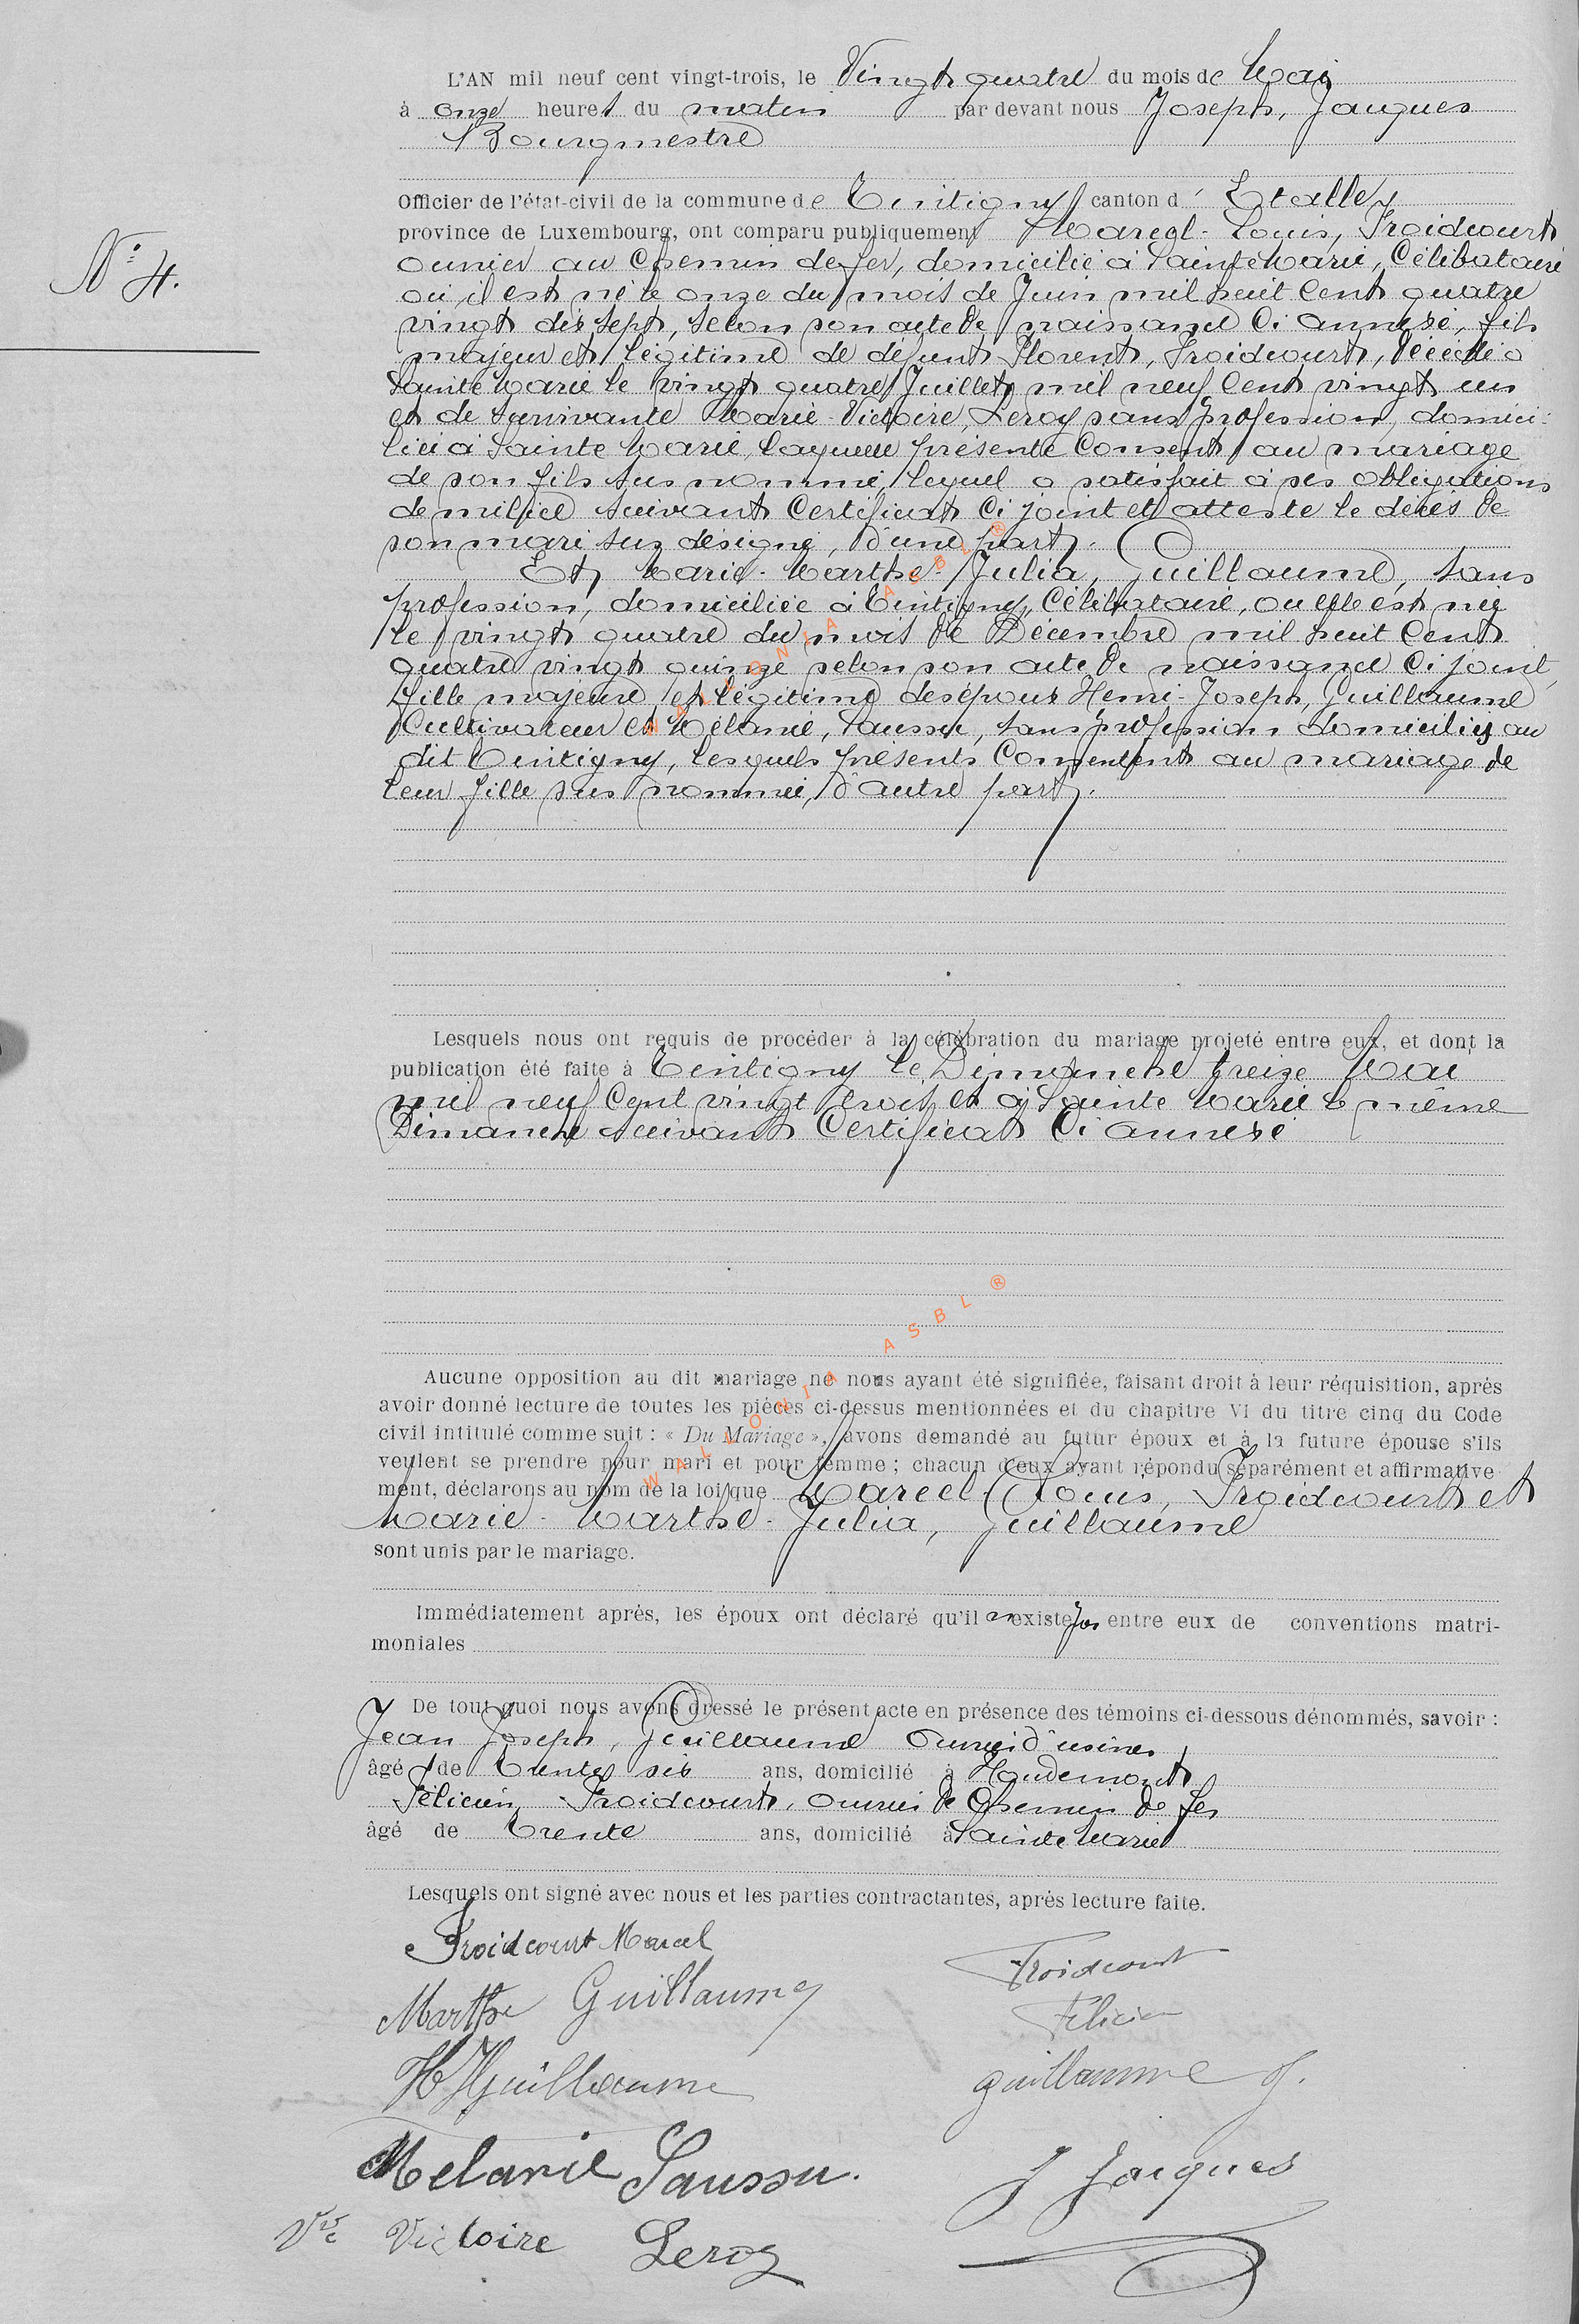 L'AN mil neuf cent vingt-trois, le Vingt quatre du mois de Mai
à onze heures du matin par devant nous Joseph, Jacques
Bourgmestre
Officier de l'état-civil de la commune de Tintigny canton d' Etalle,
province de Luxembourg, ont comparu publiquement Marcel-Louis, Froidcourt
N° 4.
ouvrier au Chemin de fer, domicilié à Sainte Marie, Célibataire
où il est né le onze du mois de Juin mil huit Cent quatre
vingt dix sept, selon son acte de naissance Ci annexé, fils
majeur et légitime de défunt Florent, Froidcourt, décédé à
Sainte Marie le vingt quatre Juillet mil neuf Cent vingt un
et de survivante Marie-Victoire, Leroy sans profession, domici-
liée à Sainte Marie, laquelle présente Consent au mariage
de son fils sus nommé, lequel a satisfait à ses obligations
de milice suivant Certificat Ci joint et atteste le décès de
son mari sus désigné, d'une part.
Et, Marie-Marthe-Julia, Guillaume, sans
profession, domiciliée à Tintigny, Célibataire, où elle est née
le vingt quatre du mois de Décembre mil huit Cent
quatre vingt quinze selon son acte de naissance Ci joint,
fille majeure et légitime des époux Henri-Joseph, Guillaume
Cultivateur et Mélanie, Saussu, sans profession domiciliés au
dit Tintigny, lesquels présents Consentent au mariage de
leur fille sus nommée, d'autre part.
Lesquels nous ont requis de procéder à la célébration du mariage projeté entre eux, et dont la
publication été faite à Tintigny le Dimanche treize Mai
mil neuf Cent vingt trois et à Sainte Marie le même
Dimanche suivant Certificat Ci annexé
Aucune opposition au dit mariage ne nous ayant été signifiée, faisant droit à leur réquisition, après
avoir donné lecture de toutes les pièces ci-dessus mentionnées et du chapitre VI du titre cinq du Code
civil intitulé comme suit : « Du Mariage », avons demandé au futur époux et à la future épouse s'ils
veulent se prendre pour mari et pour femme ; chacun d'eux ayant répondu séparément et affirmative
ment, déclarons au nom de la loi que Marcel-Louis, Froidcourt et
Marie-Marthe-Julia, Guillaume
sont unis par le mariage.
Immédiatement après, les époux ont déclaré qu'il n'existe pas entre eux de conventions matri-
moniales
De tout quoi nous avons dressé le présent acte en présence des témoins ci-dessous dénommés, savoir :
Jean Joseph, Guillaume Ouvrier d'usines
âgé de trente six ans, domicilié à Houdemont
Félicien Froidcourt, ouvrier de Chemin de fer
âgé de trente ans, domicilié à Sainte Marie
Lesquels ont signé avec nous et les parties contractantes, après lecture faite.
Froidcourt Marcel
Froidcourt
Marthe Guillaume
Félicien
H Guillaume
guillaume J.
Melanie Saussu.
J Jacques
Vve Victoire Leroy
WALLONIA ASBL ®
WALLONIA ASBL ®